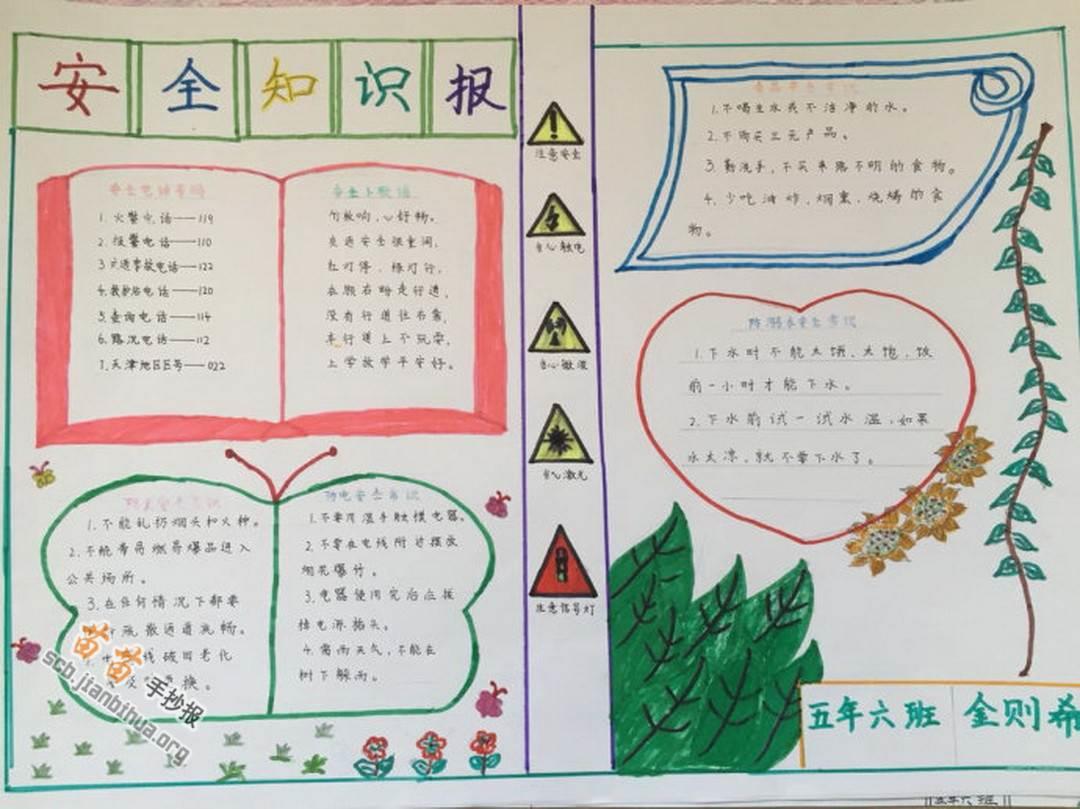 安全知识报
安全电话号码
1. 火警电话——119
2. 报警电话——110
3. 交通事故电话——122
4. 救护站电话——120
5. 查询电话——114
6. 路况电话——112
7. 天津地区区号——022
安全上歌谣
竹敲响，心好畅。
交通安全很重闻，
红灯停，绿灯行，
在顾右盼走行道，
没有行道往右靠，
车行道上不玩耍，
上学放学平安好。
防火安全常识
1. 不能乱扔烟头和火种。
2. 不能带易燃易爆品进入
公共场所。
3. 在任何情况下都要
疏散通道流畅。
线破旧老化
换。
防电安全常识
1. 不要用湿手触摸电器。
2. 不要在电线附近摆放
烟花爆竹。
3. 电器使用完后应拔
掉电源插头。
4. 雷雨天气，不能在
树下躲雨。
注意安全
当心触电
当心微波
当心激光
注意信号灯
食品安全常识
1. 不喝生水或不洁净的水。
2. 不购买三无产品。
3. 勤洗手，不买来路不明的食物。
4. 少吃油炸、烟熏、烧烤的食
物。
防溺水安全常识
1. 下水时不能太饿、太饱，饭
前一小时才能下水。
2. 下水前试一试水温，如果
水太凉，就不要下水了。
五年六班 金则希
五年六班
苗苗手抄报
scb.jianbihua.org